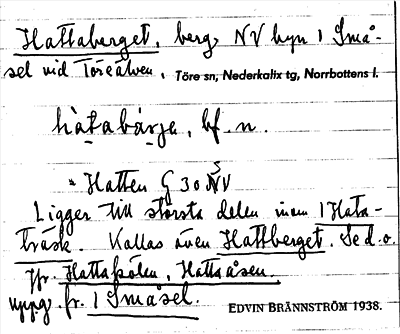 Hattaberget, berg, NV byn 1 Små-
sel vid Töreälven, Töre sn, Nederkalix tg, Norrbottens l.
hàtabärje, bf. n.
Hatten G 30 NV
Ligger till största delen inom 1 Hata-
träsk. Kallas även Hattberget. Se d.o.
Jfr. Hattaholen, Hattaåsen.
uppg. fr. 1 Småsel. EDVIN BRÄNNSTRÖM 1938.